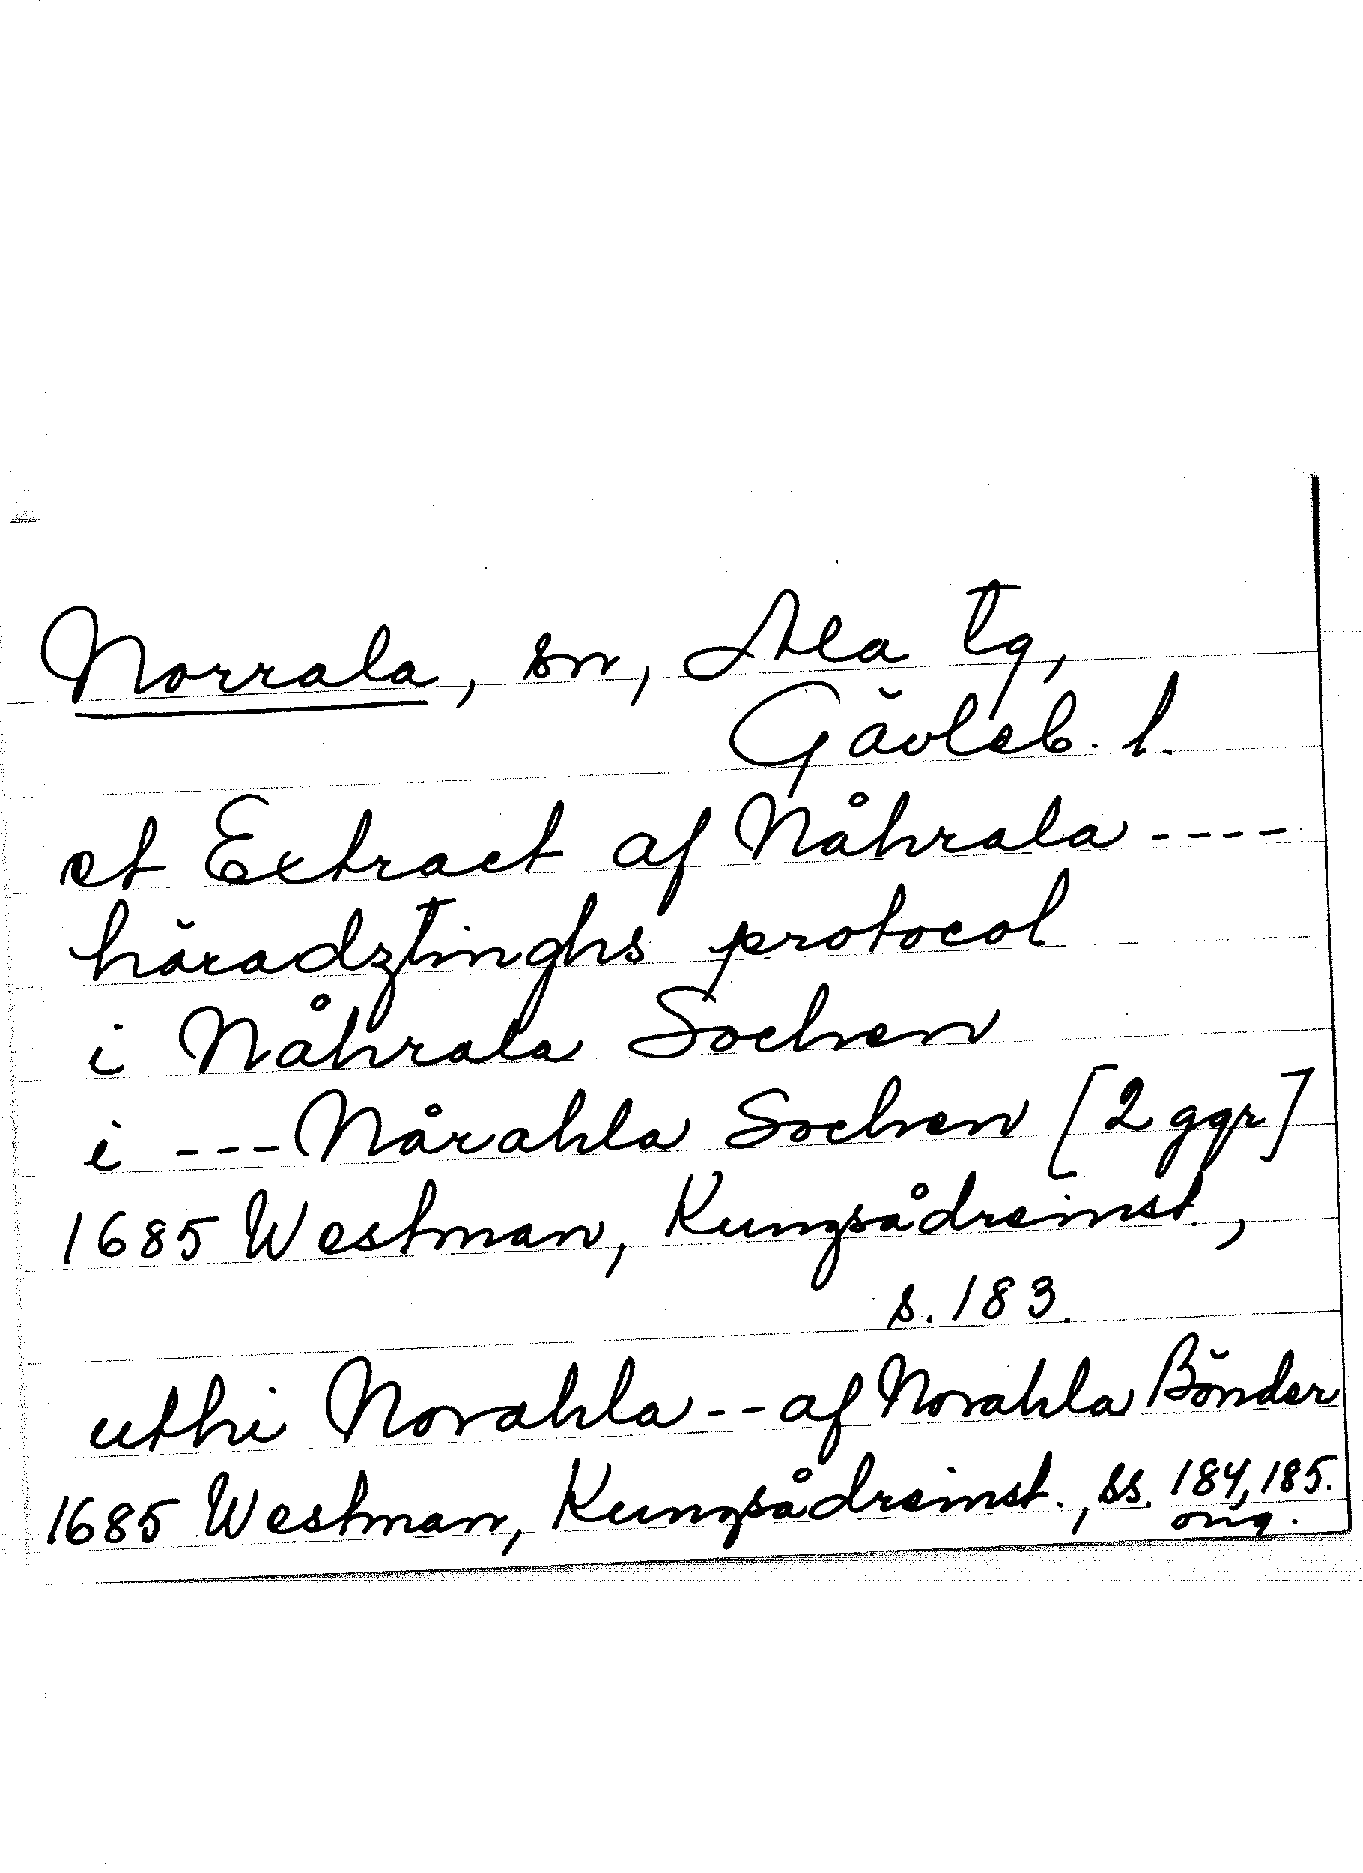 Norrala, sn, Ala tg,
Gävleb. l.
et Extract af Nåhrala ----
häradztinghs protocol
i Nåhrala Sochen
i --- Nårahla Sochen [2 ggr]
1685 Westman, Kungsådreinst.,
s. 183.
uthi Norahla -- af Norahla Bönder
1685 Westman, Kungsådreinst., ss. 184, 185.
orig.